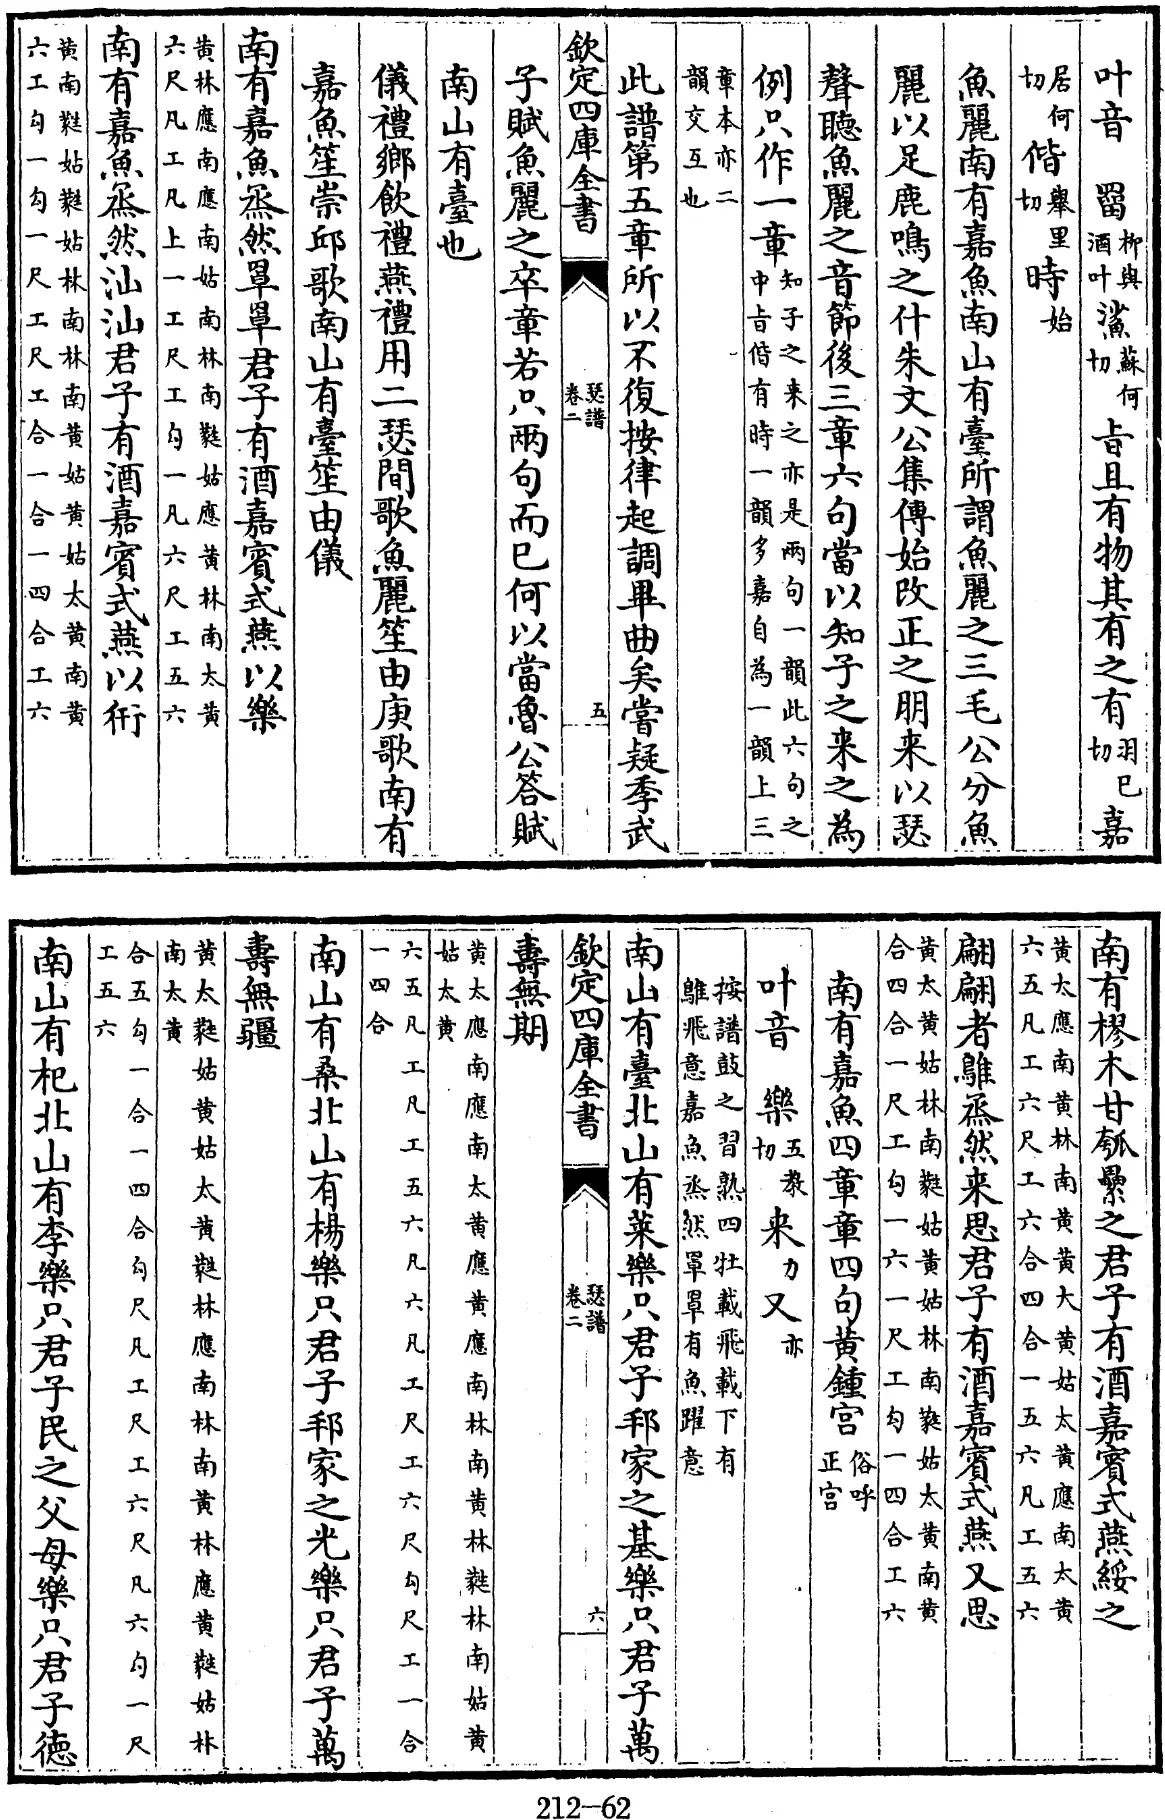 叶音　罶柳與酒叶鯊蘇何切㫖且有物其有之有羽已切嘉
居何切偕舉里切時始
魚麗南有嘉魚南山有臺所謂魚麗之三毛公分魚
麗以足鹿鳴之什朱文公集傳始改正之朋来以瑟
聲聽魚麗之音節後三章六句當以知子之来之為
例只作一章知子之来之亦是兩句一韻此六句之中㫖偕有時一韻多嘉自為一韻上三
章本亦二韻交互也
此譜第五章所以不復按律起調畢曲矣嘗疑季武
欽定四庫全書　瑟譜卷二　五
子賦魚麗之卒章若只兩句而已何以當魯公答賦
南山有臺也
儀禮鄉飲禮燕禮用二瑟間歌魚麗笙由庚歌南有
嘉魚笙崇邱歌南山有臺笙由儀
南有嘉魚烝然罩罩君子有酒嘉賓式燕以樂
黄林應南應南姑南林南蕤姑應黄林南太黄
六尺凡工凡上一工尺工勾一凡六尺工五六
南有嘉魚烝然汕汕君子有酒嘉賓式燕以衎
黄南蕤姑蕤姑林南林南黄姑黄姑太黄南黄
六工勾一勾一尺工尺工合一合一四合工六
南有樛木甘瓠纍之君子有酒嘉賓式燕綏之
黄太應南黄林南黄黄大黄姑太黄應南太黄
六五凡工六尺工六合四合一五六凡工五六
翩翩者鵻烝然来思君子有酒嘉賓式燕又思
黄太黄姑林南蕤姑黄姑林南蕤姑太黄南黄
合四合一尺工勾一六一尺工勾一四合工六
南有嘉魚四章章四句黄鍾宫俗呼正宫
叶音　樂五教切来力又亦
按譜鼓之習熟四牡載飛載下有
鵻飛意嘉魚烝然罩罩有魚躍意
南山有臺北山有萊樂只君子邦家之基樂只君子萬
欽定四庫全書　瑟譜卷二　六
壽無期
黄太應南應南太黄應黄應南林南黄林蕤林南姑黄
姑太黄
六五凡工凡工五六凡六凡工尺工六尺勾尺工一合
一四合
南山有桑北山有楊樂只君子邦家之光樂只君子萬
壽無疆
黄太蕤姑黄姑太黄蕤林應南林南黄林應黄蕤姑林
南太黄
合五勾一合一四合勾尺凡工尺工六尺凡六勾一尺
工五六
南山有杞北山有李樂只君子民之父母樂只君子徳
212—62